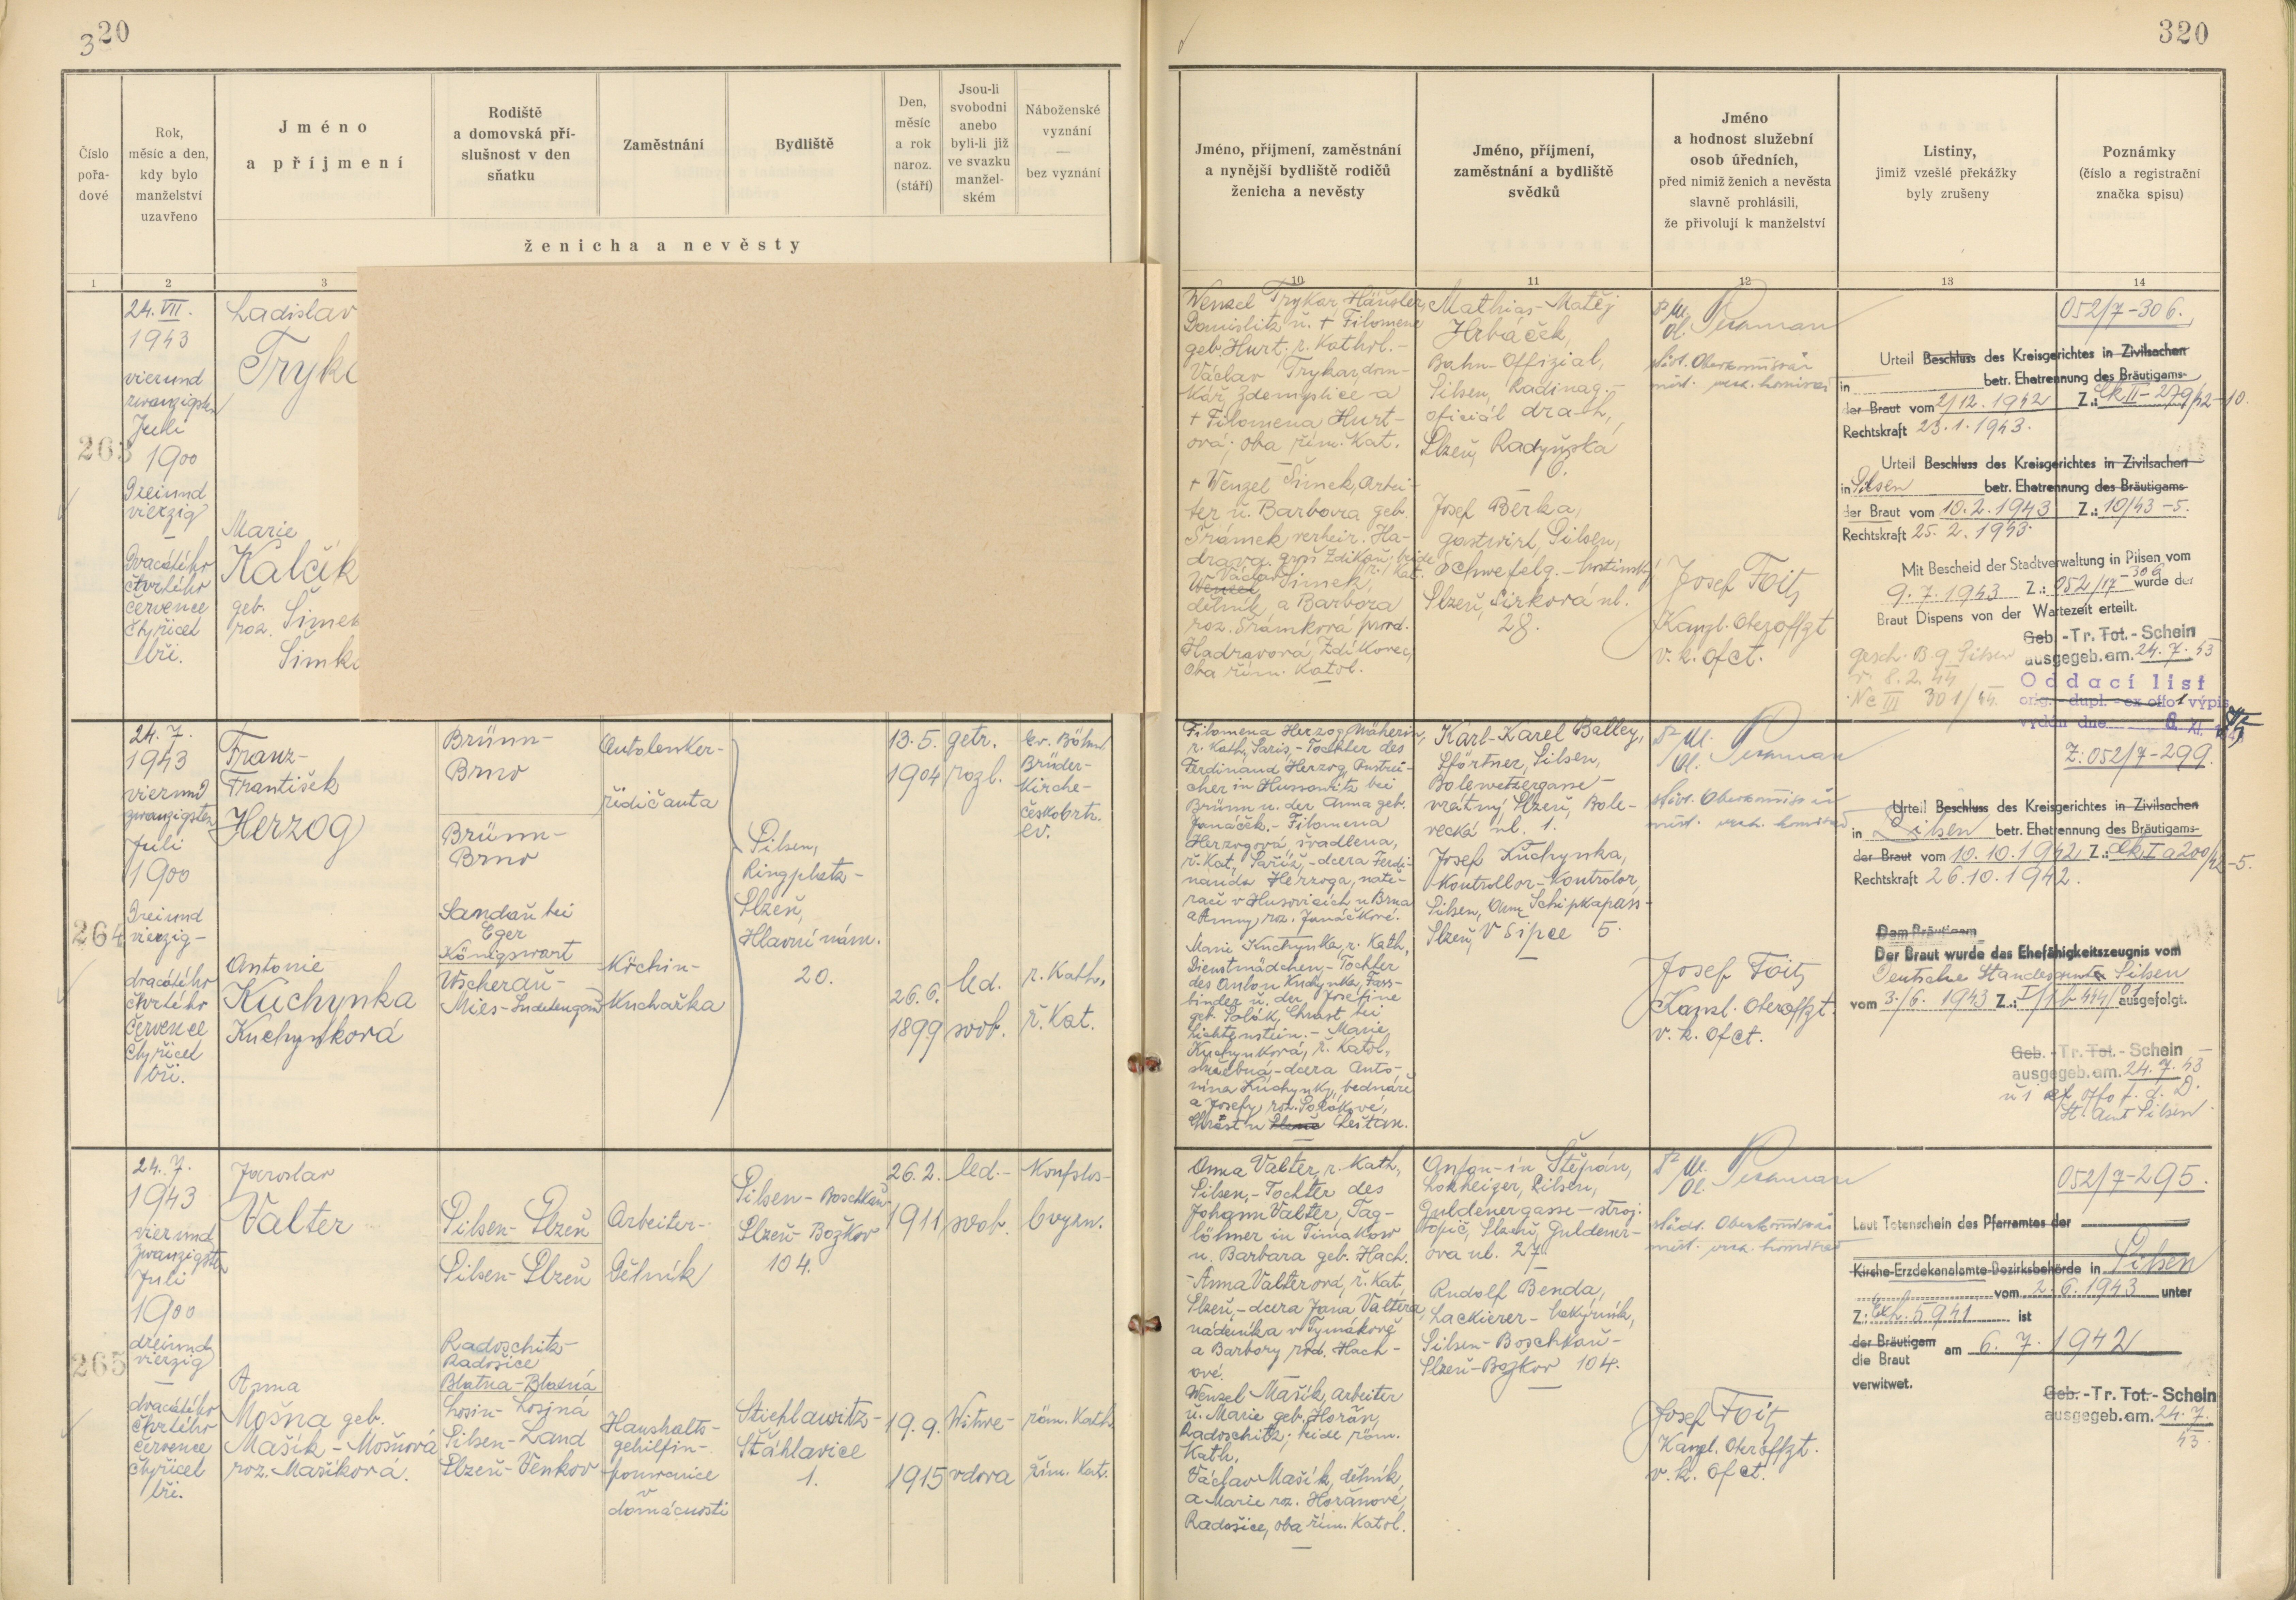 320
320
Číslo
pořa-
dové
Rok,
měsíc a den,
kdy bylo
manželství
uzavřeno
Jméno
a příjmení
Rodiště
a domovská pří-
slušnost v den
sňatku
Zaměstnání
Bydliště
Den,
měsíc
a rok
naroz.
(stáří)
Jsou-li
svobodni
anebo
byli-li již
ve svazku
manžel-
ském
Náboženské
vyznání
—
bez vyznání
ženicha a nevěsty
Jméno, příjmení, zaměstnání
a nynější bydliště rodičů
ženicha a nevěsty
Jméno, příjmení,
zaměstnání a bydliště
svědků
Jméno
a hodnost služební
osob úředních,
před nimiž ženich a nevěsta
slavně prohlásili,
že přivolují k manželství
Listiny,
jimiž vzešlé překážky
byly zrušeny
Poznámky
(číslo a registrační
značka spisu)
1
2
3
10
11
12
13
14
263
24. VII.
1943
vierund
zwanzigsten
Juli
1900
Dreiund
vierzig
Dvacátého
čtvrtého
července
čtyřicet
tři.
Ladislav
Tryk
Marie
Kalčík
geb.
roz. Šimek
Šimk
Wenzel Trykar, Häusler,
Domislitz u. + Filomene
geb. Hurt; r. Kathol.-
Václav Trykar, dom-
kář, Ždemyslice a
+ Filomena Hurt-
ová; oba řím. Kat.
+ Wenzel Šimek, Arbei-
ter u. Barbora geb.
Šrámek verheir. Ha-
drava, gross Zdikau; beide
r. Kat.
Václav Šimek,
dělník a Barbora
roz. Šrámková provd.
Hadravová, Zdíkovec,
oba řím. Katol.
Mathias-Matěj
Hrbáček,
Bahn-Offizial,
Pilsen, Radinag.-
oficiál drah,
Plzeň, Radyňská
Josef Berka,
Gastwirt, Pilsen,
Schwefelg.-hostinský
Plzeň, Sirková ul.
28.
Städt. Oberkommissär
Josef Foit
Kanzl. Oberoffzt
v. k. ofct.
052/7-306.
Urteil Beschluss des Kreisgerichtes in Zivilsachen
in betr. Ehetrennung des Bräutigams
der Braut vom 2/12. 1942 Z.: Ck II-279/42-10.
Rechtskraft 23.1.1943.
Urteil Beschluss des Kreisgerichtes in Zivilsachen
in Pilsen betr. Ehetrennung des Bräutigams
der Braut vom 10.2.1943 Z.: 10/43-5.
Rechtskraft 25.2.1943.
Mit Bescheid der Stadtverwaltung in Pilsen vom
9.7.1943 Z.: 052/17-306 wurde der
Braut Dispens von der Wartezeit erteilt.
Geb.-Tr. Tot.-Schein
ausgegeb. am. 24.7.43
gesch. B.g. Pilsen
v. 8.2.44
Nc III 301/44.
Oddací list
orig.-dupl.-ex offo 1 výpis
vydán dne 8. XI.
264
24.7.
1943
vierund
zwanzigsten
Juli
1900
Dreiund
vierzig-
dvacátého
čtvrtého
července
čtyřicet
tři.
Franz-
František
Herzog
Antonie
Kuchynka
Kuchyňková
Brünn-
Brno
Brünn-
Brno
Sandau bei
Eger
Königswart
Wscherau-
Mies-Sudetengau
Autolenker-
řidič auta
Köchin-
Kuchařka
Pilsen,
Ringplatz-
Plzeň,
Hlavní nám.
20.
13.5.
1904
getr.
rozl.
Ev. Böhm.
Brüder-
Kirche-
českobrtr.
ev.
26.6.
1899
led.
svob.
r. Kath.
ř. Kat.
Filomena Herzog, Näherin,
r. Kath., Paris,-Tochter des
Ferdinand Herzog, Anstrei-
cher in Hussowitz bei
Brünn u. der Anna geb.
Janáček.-Filomena
Herzogová, švadlena,
ř. Kat., Paříž,-dcera Ferdi-
nanda Herzoga, natě-
rače v Husovicích u Brna
a Anny, roz. Janáčkové.
Marie Kuchynka, r. Kath.,
Dienstmädchen,-Tochter
des Anton Kuchynka, Fass-
binder u. der Josefine
geb. Polák, Chrast bei
Lichtenstein.-Marie
Kuchyňková, ř. Katol.,
služebná,-dcera Anto-
nína Kuchynky, bednáře
a Josefy, roz. Polákové,
Chrást u Líšťan.
Karl-Karel Balley,
Pförtner, Pilsen,
Bolewetzergasse-
vrátný, Plzeň, Bole-
vecká ul. 1.
Josef Kuchynka,
Kontrollor-Kontrolor,
Pilsen, Am Schipkapass-
Plzeň, V Šipce 5.
Städt. Oberkommissär
Josef Foit
Kanzl. Oberoffzt.
v. k. ofct.
Z: 052/7-299.
Urteil Beschluss des Kreisgerichtes in Zivilsachen
in Pilsen betr. Ehetrennung des Bräutigams
der Braut vom 10.10.1942 Z.: Ck I a 200/42-5.
Rechtskraft 26.10.1942.
Dem Bräutigam
Der Braut wurde das Ehefähigkeitszeugnis vom
Deutsches Standesamte Pilsen
vom 3./6. 1943 Z.: ausgefolgt.
Geb.-Tr. Tot.-Schein
ausgegeb. am. 24.7.43
u 1 ex offo f. d. D.
St. Amt Pilsen.
265
24.7.
1943
vierund
zwanzigsten
Juli
1900
dreiund
vierzig
dvacátého
čtvrtého
července
čtyřicet
tři.
Jaroslav
Valter
Anna
Mošna geb.
Mašík-Mošnová
roz. Mašíková.
Pilsen-Plzeň
Pilsen-Plzeň
Radoschitz-
Radošice
Blatna-Blatná
Losin-Losiná
Pilsen-Land
Plzeň-Venkov
Arbeiter-
Dělník
Haushalts-
gehilfin-
pomocnice
v
domácnosti
Pilsen-Boschkau
Plzeň-Božkov
104.
Stiehlawitz-
Štáhlavice
1.
26.2.
1911
led.-
svob.
Konfslos-
bvyzn.
19.9.
1915
Witwe-
vdova
röm. Kath.
řím. Kat.
Anna Valter, r. Kath.,
Pilsen,-Tochter des
Johann Valter, Tag-
löhner in Timakow
u. Barbara geb. Hach.
-Anna Valterová, ř. Kat.,
Plzeň,-dcera Jana Valtera,
nádeníka v Tymákově
a Barbory rod. Hach-
ové.
Wenzel Mašík, Arbeiter
u. Marie geb. Hořán,
Radoschitz; beide röm.
Kath.
Václav Mašík, dělník
a Marie roz. Hořanové,
Radošice, oba řím. Katol.
Anton-ín Štěpán,
Lokheizer, Pilsen,
Guldenergasse-stroj.
topič, Plzeň, Guldener-
ova ul. 27.
Rudolf Benda,
Lackierer-lakýrník,
Pilsen-Boschkau-
Plzeň-Božkov 104.
Städt. Oberkommissär
Josef Foit
Kanzl. Oberoffzt.
v. k. ofct.
052/7-295.
Laut Totenschein des Pfarramtes der
Kirche-Erzdekanalamte-Bezirksbehörde in Pilsen
vom 2.6.1943 unter
Z.: Exh. 5941 ist
der Bräutigam am 6.7.1942
die Braut
verwitwet.
Geb.-Tr. Tot.-Schein
ausgegeb. am. 24.7.
43.